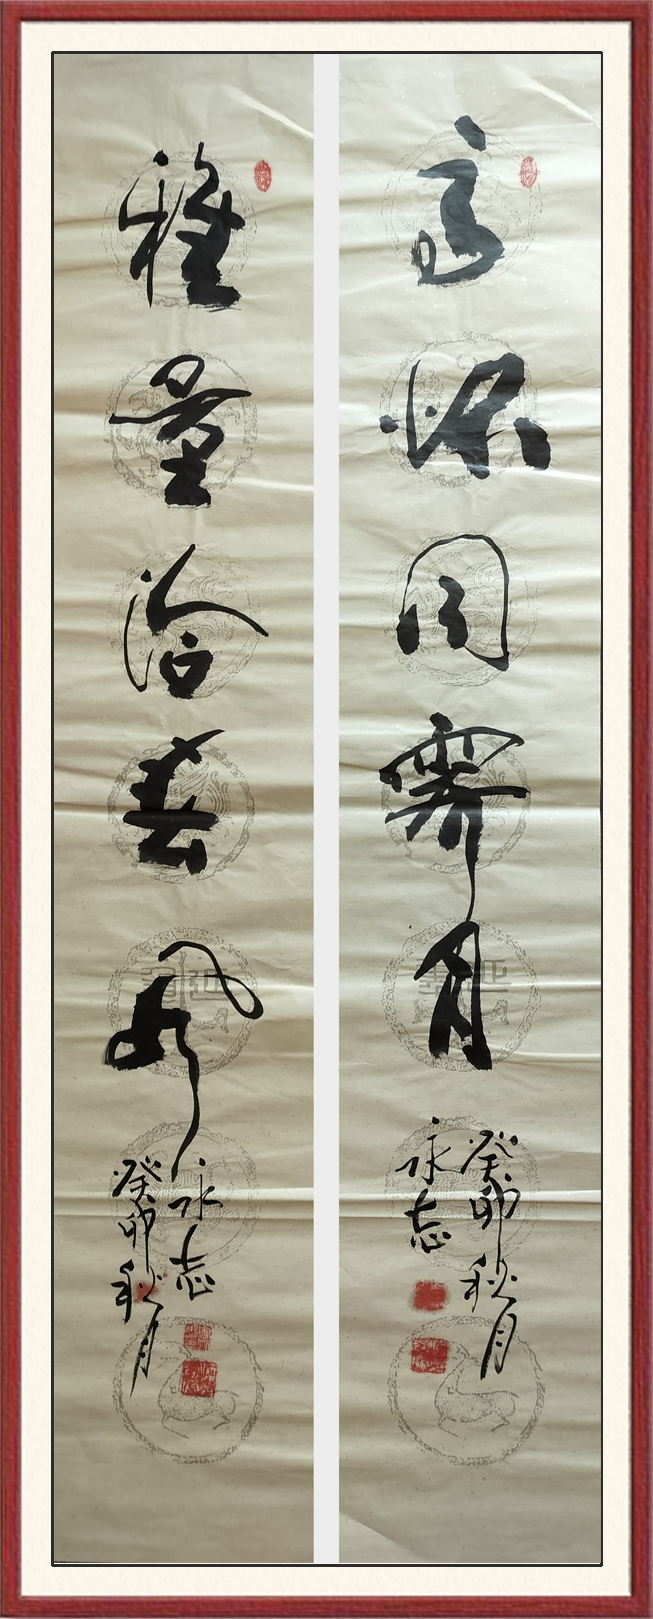 高怀同霁月
癸卯秋月
永志
雅量洽春风
永志
癸卯秋月